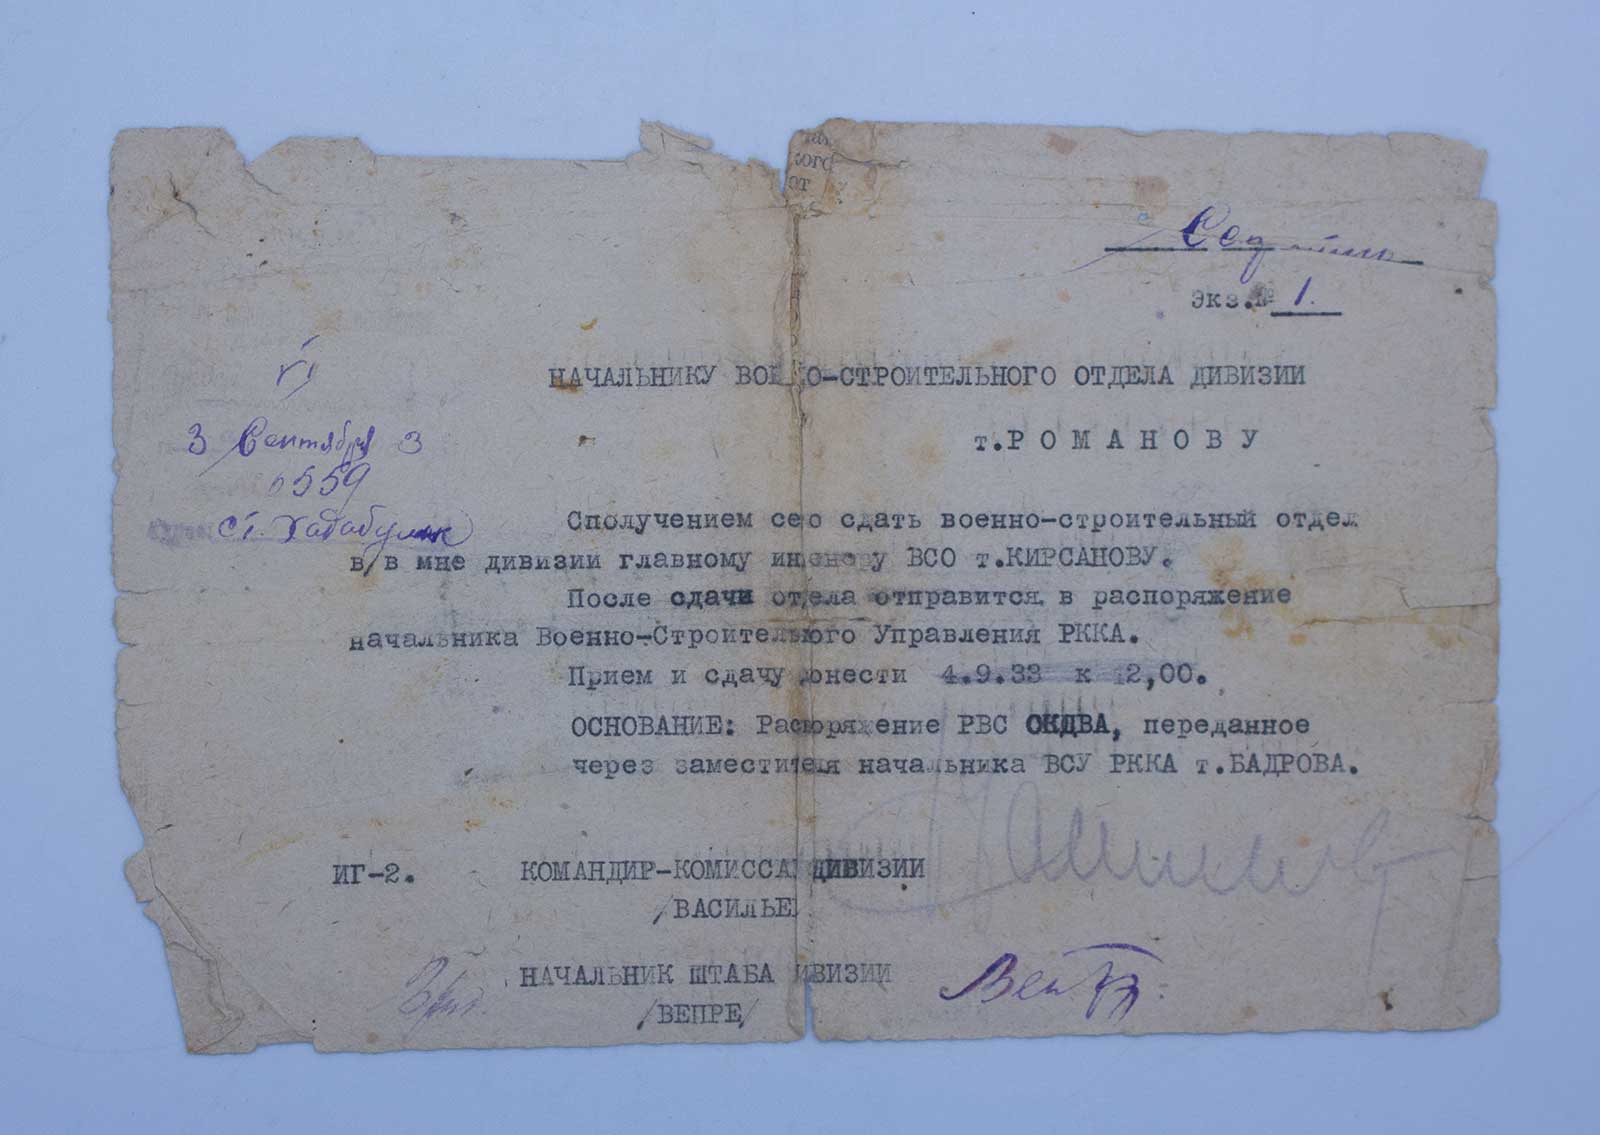 кого
от
Экз.№ 1.
НАЧАЛЬНИКУ ВОЕННО-СТРОИТЕЛЬНОГО ОТДЕЛА ДИВИЗИИ
3 Сентября 3
т.РОМАНОВУ
0559
Сполучением сего сдать военно-строительный отдел
ст. Хадабулак
в/в мне дивизии главному инженеру ВСО т.КИРСАНОВУ.
После сдачи отдела отправится в распоряжение
начальника Военно-Строительного Управления РККА.
Прием и сдачу донести 4.9.33 к 12,00.
ОСНОВАНИЕ: Распоряжение РВС ОКДВА, переданное
через заместителя начальника ВСУ РККА т.БАДРОВА.
ИГ-2. КОМАНДИР-КОМИССАР ДИВИЗИИ
/ВАСИЛЬЕВ/
НАЧАЛЬНИК ШТАБА ДИВИЗИИ
/ВЕПРЕ/